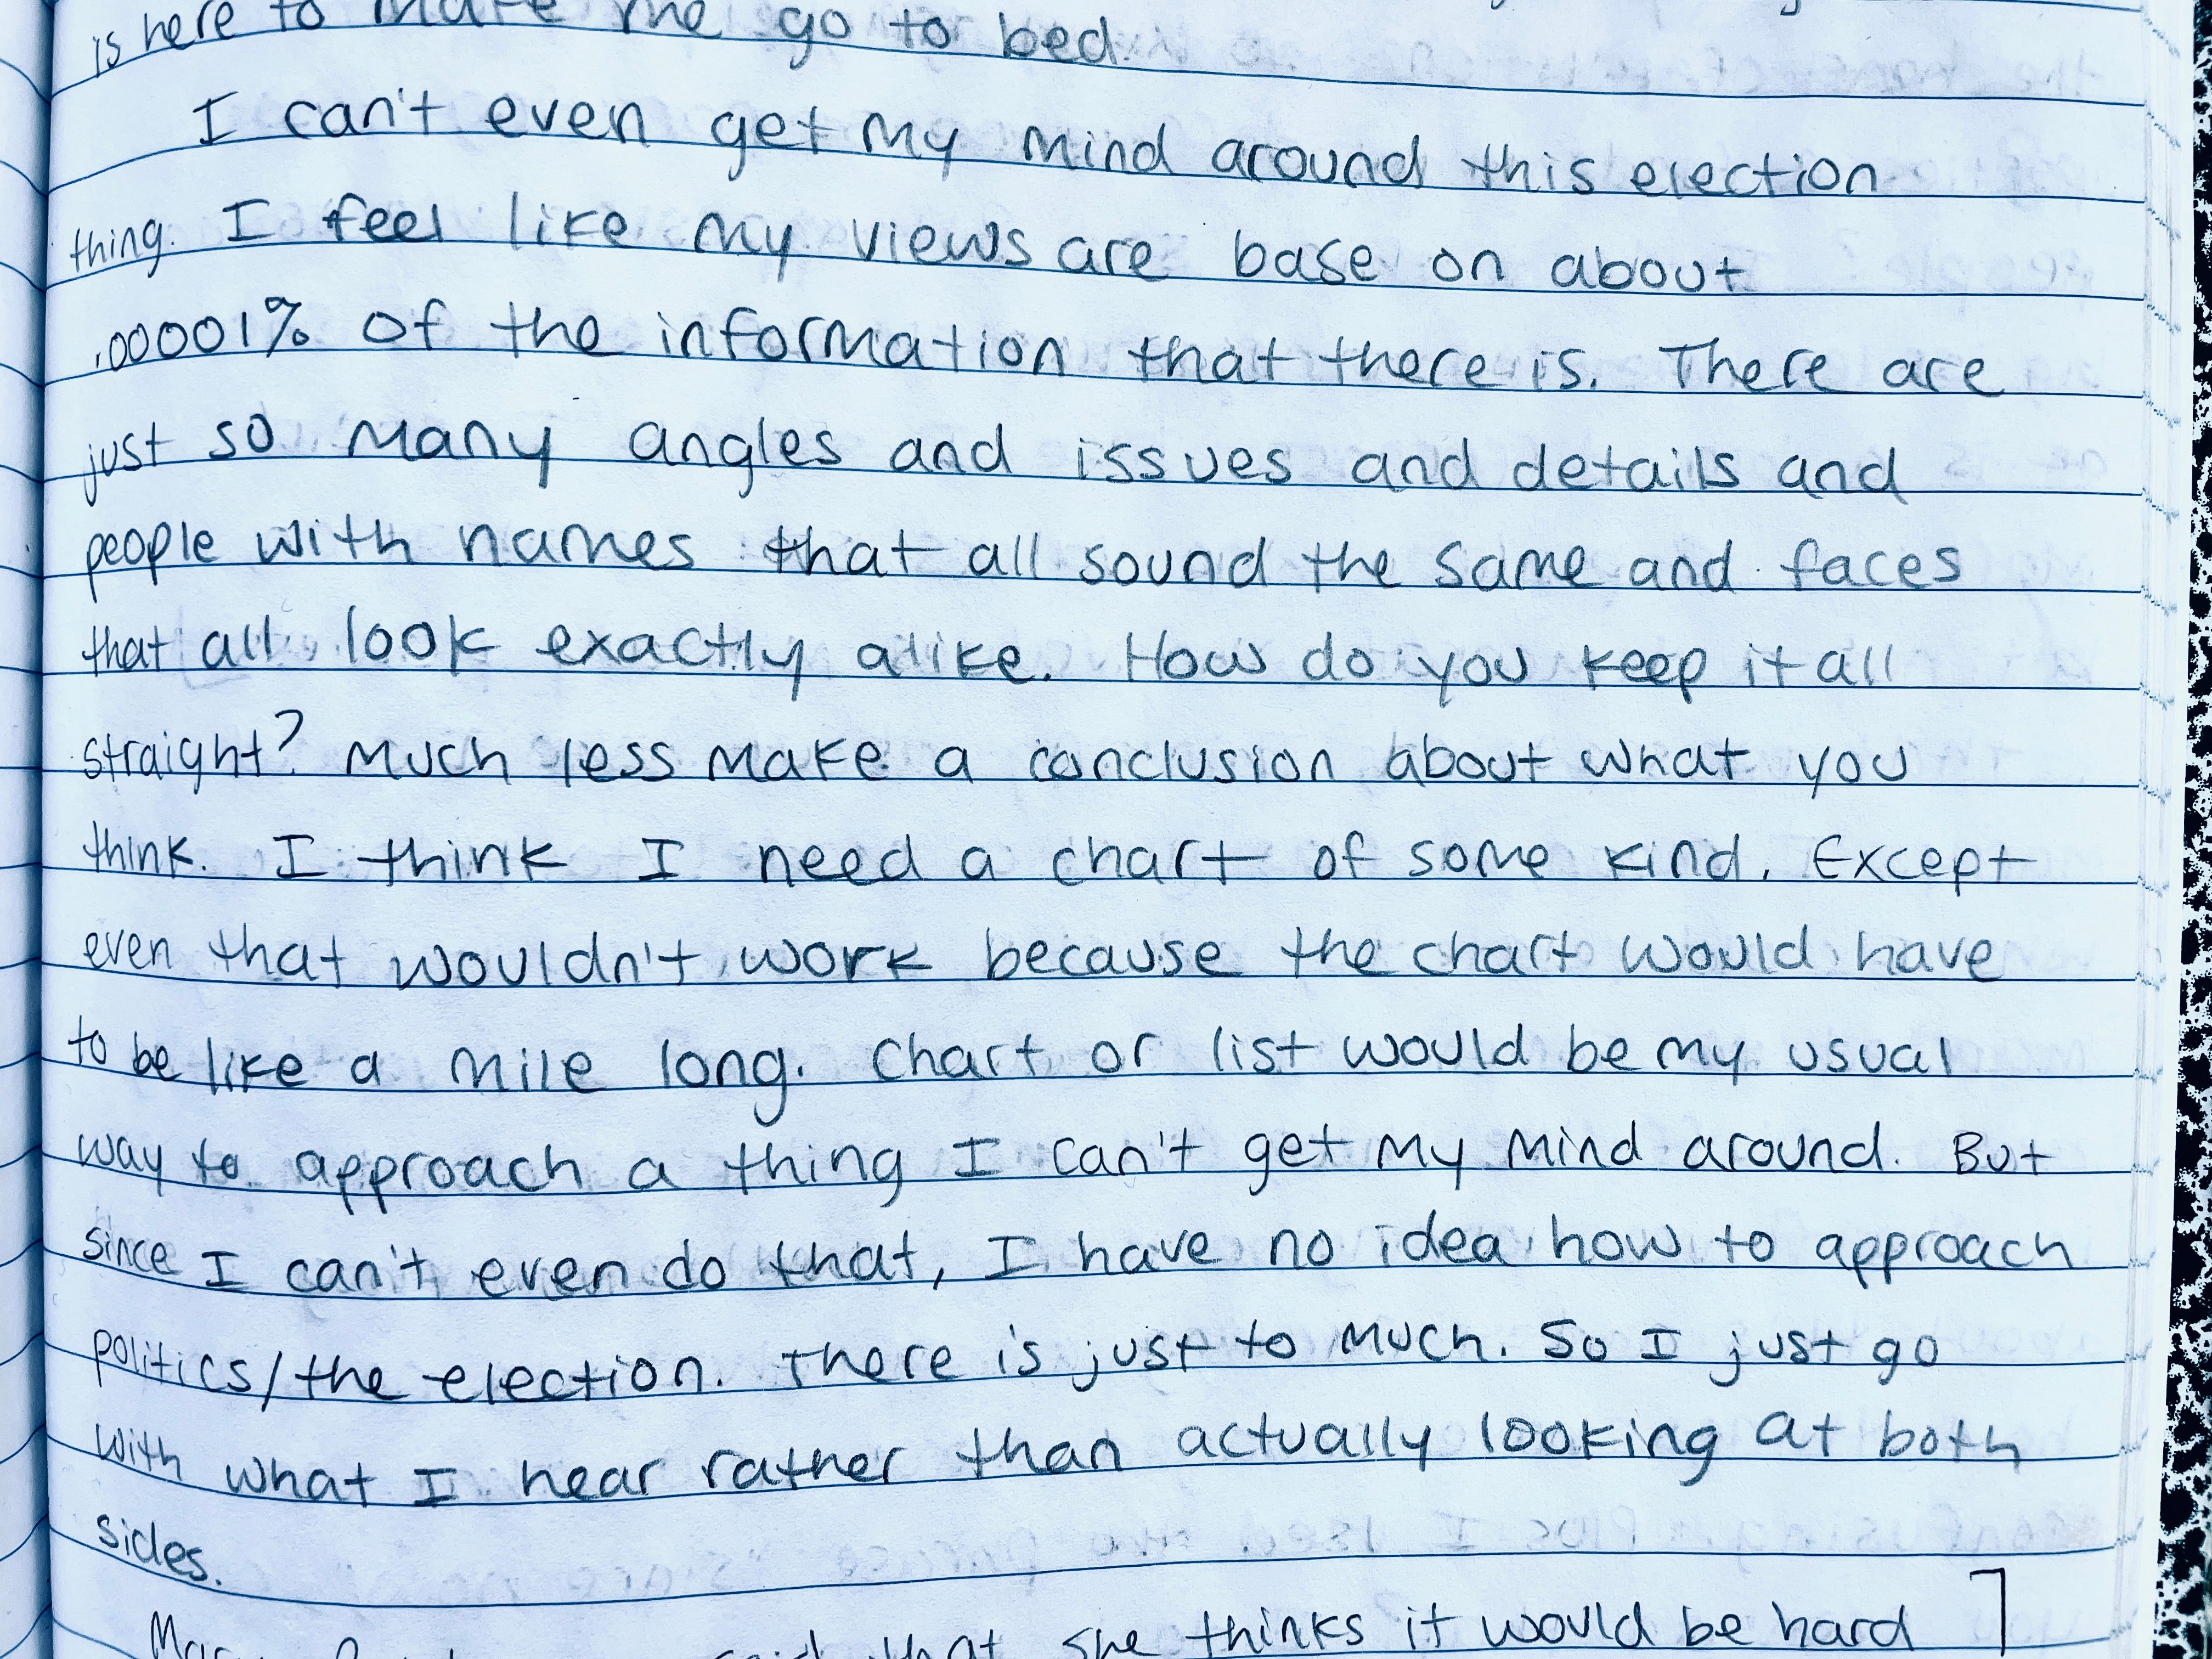 is here to make me go to bed.
I can't even get my mind around this election
thing. I feel like my views are base on about
.00001% of the information that there is. There are
just so many angles and issues and details and
people with names that all sound the same and faces
that all look exactly alike. How do you keep it all
straight? Much less make a conclusion about what you
think. I think I need a chart of some kind. Except
even that wouldn't work because the chart would have
to be like a mile long. Chart or list would be my usual
way to approach a thing I can't get my mind around. But
since I can't even do that, I have no idea how to approach
politics/the election. There is just to much. So I just go
with what I hear rather than actually looking at both
sides.
said that she thinks it would be hard ]